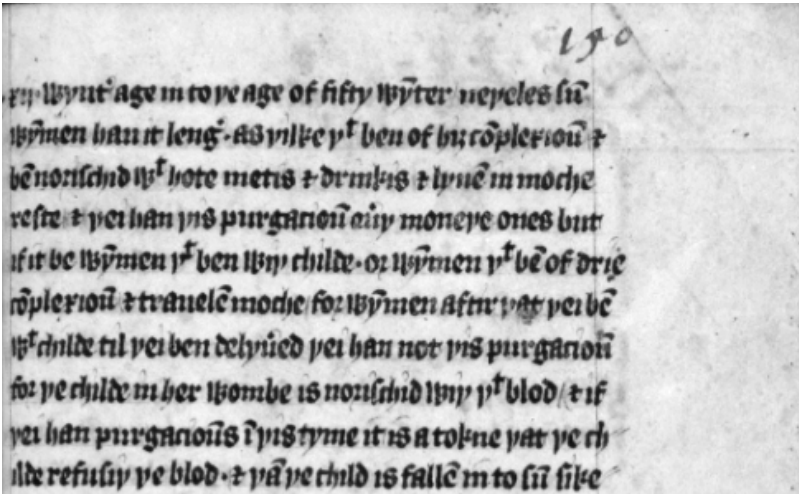 190
xij wynt' age in to þe age of fifty wȳter neþeles sū
wȳmen han it leng' · as þilke yᵗ ben of hiȝ cōplexioū ⁊
bē norischid wᵗ hote metis ⁊ drinkis ⁊ lyuē in moche
reste ⁊ þei han þis purgacioū eūy moneþe ones but
if it be wȳmen yᵗ ben wiþ childe · or wȳmen yᵗ bē of drie
cōplexioū ⁊ trauelē moche / for wȳmen aftir þat þei bē
wᵗ childe til þei ben delyūed þei han not þis purgacioū
for þe childe in her wombe is norischid wiþ yᵗ blod / ⁊ if
þei han purgacioūs ī þis tyme it is a tokne þat þe ch
ilde refusiþ þe blod · ⁊ þā þe child is fallē in to sū sike